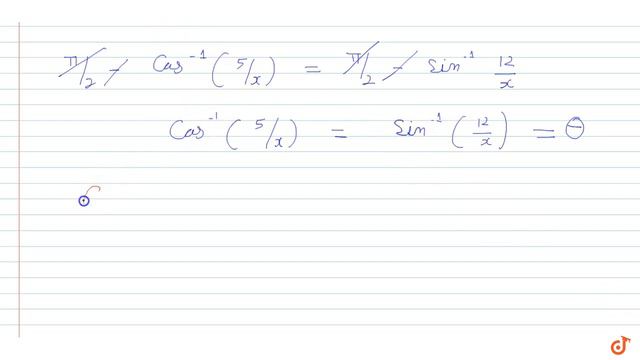 π/2 - Cos⁻¹ (5/x) = π/2 - Sin⁻¹ 12/x
Cos⁻¹ (5/x) = Sin⁻¹ (12/x) = θ